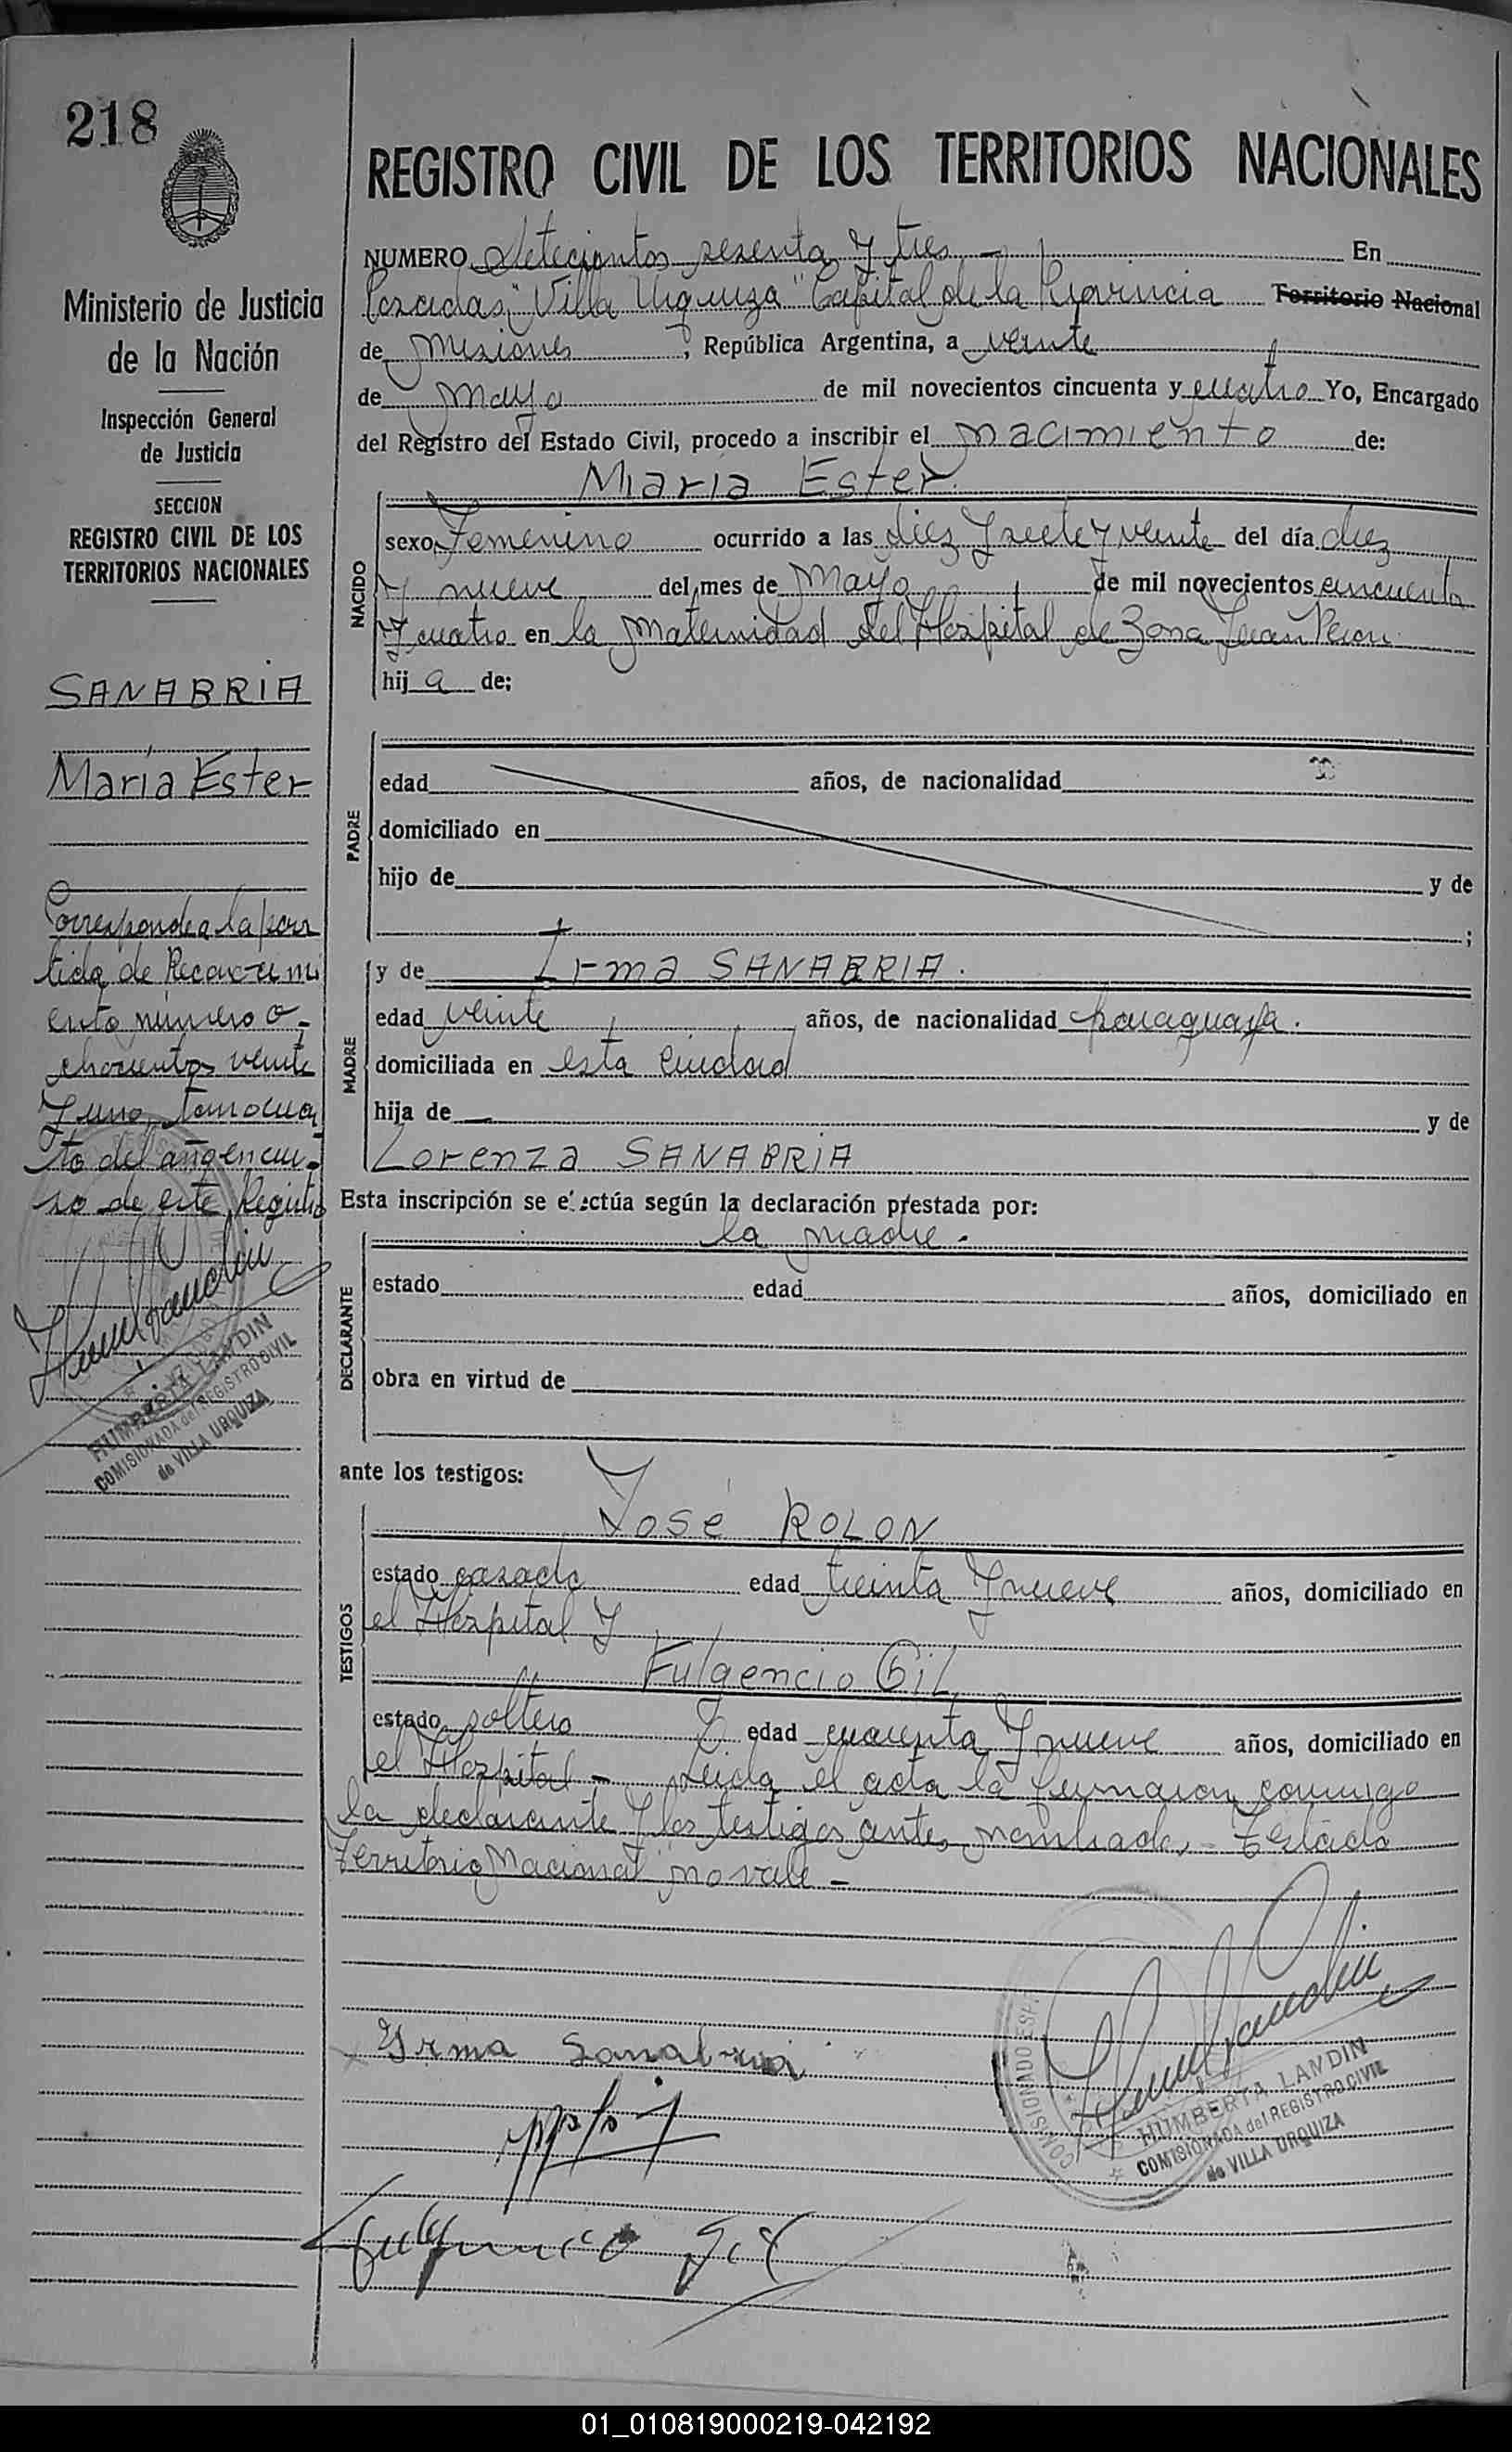 218
Ministerio de Justicia
de la Nación
Inspección General
de Justicia
SECCION
REGISTRO CIVIL DE LOS
TERRITORIOS NACIONALES
SANABRIA
María Ester
Corresponde a la par
tida de Reconocimi
ento número o-
chocientos veinte
y uno, tomo cua
to del año en cur-
so de este Registro
HUMBERTA LANDIN
COMISIONADA del REGISTRO CIVIL
de VILLA URQUIZA
REGISTRO CIVIL DE LOS TERRITORIOS NACIONALES
NUMERO Setecientos sesenta y tres - En
Posadas, "Villa Urquiza" Capital de la Provincia Territorio Nacional
de Misiones, República Argentina, a veinte
de Mayo de mil novecientos cincuenta y cuatro Yo, Encargado
del Registro del Estado Civil, procedo a inscribir el nacimiento de:
María Ester.
NACIDO
sexo Femenino ocurrido a las diez y siete y veinte del día diez
y nueve del mes de Mayo de mil novecientos cincuenta
y cuatro en la Maternidad del Hospital de Zona Juan Peron
hija de;
PADRE
edad años, de nacionalidad
domiciliado en
hijo de y de
;
MADRE
y de Irma SANABRIA.
edad veinte años, de nacionalidad paraguaya.
domiciliada en esta ciudad
hija de — y de
Lorenza SANABRIA
Esta inscripción se efectúa según la declaración prestada por:
la madre.
DECLARANTE
estado edad años, domiciliado en
obra en virtud de
ante los testigos:
TESTIGOS
José ROLON
estado casado edad treinta y nueve años, domiciliado en
el Hospital y
Fulgencio GiL
estado soltero edad cuarenta y nueve años, domiciliado en
el Hospital - Leida el acta la firmaron conmigo
la declarante y los testigos antes nombrados - Testado
Territorio Nacional no vale -
Yrma Sanabria
HUMBERTA LANDIN
COMISIONADA del REGISTRO CIVIL
de VILLA URQUIZA
Fulgencio Gil
01_010819000219-042192